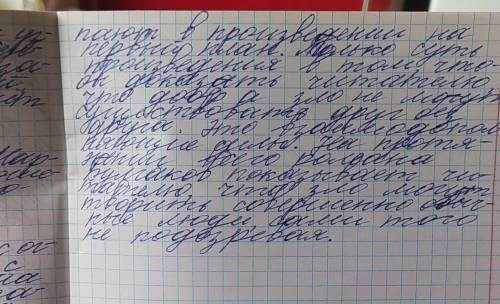 пают в произведении на
первый план. Только суть
произведения в том, что-
бы доказать читателю
что добро и зло не могут
существовать друг без
друга. Это взаимодопол
няющие силы. На протя-
жении всего романа
Булгаков показывает чи-
тателю, что зло могут
творить совершенно обыч-
ные люди, сами того
не подозревая.